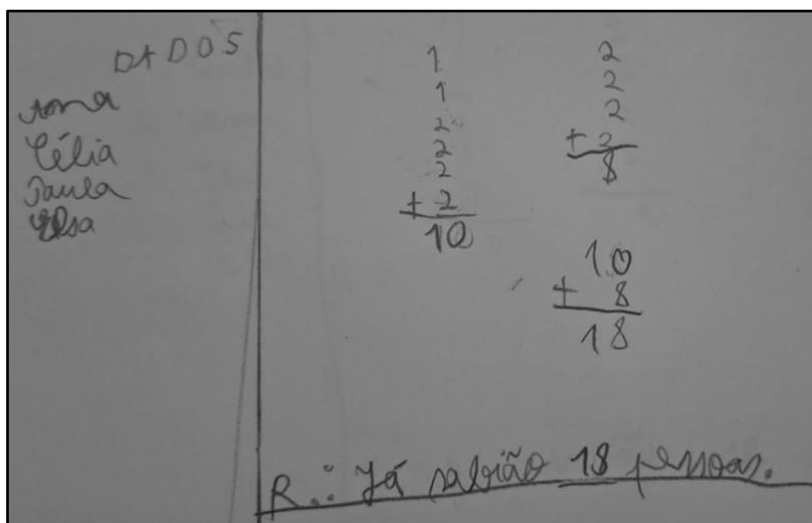 DADOS
Ana
Célia
Paula
Elsa
1
1
2
2
2
+ 2
10
2
2
2
+ 2
8
10
+ 8
18
R.: Já sabião 18 pessoas.